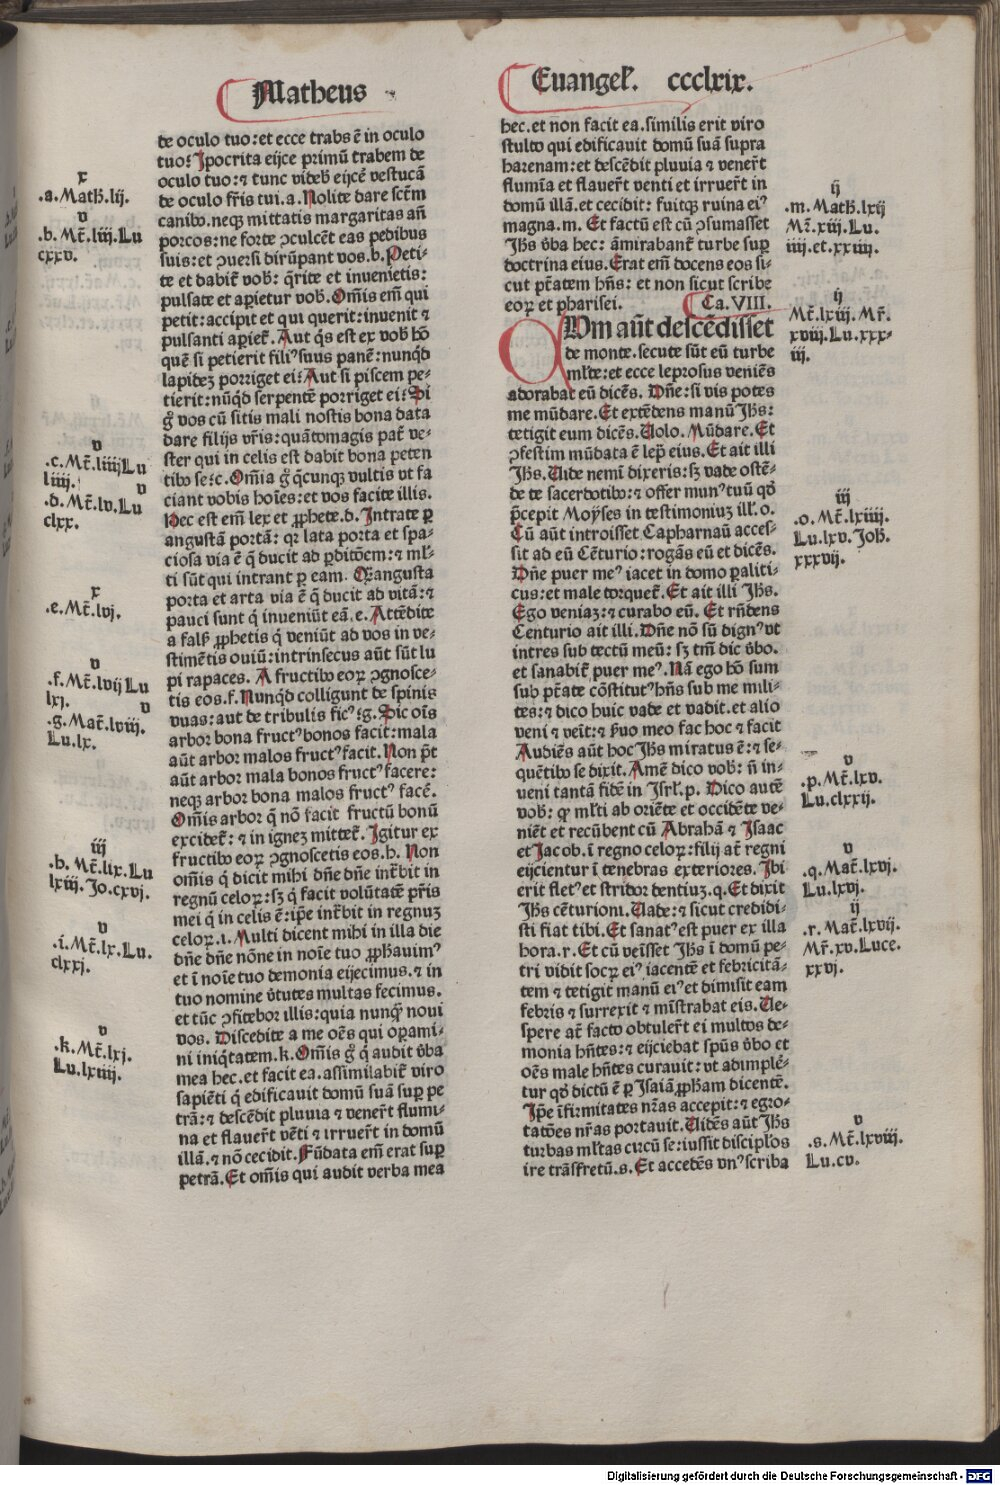 Matheus
de oculo tuo: et ecce trabs ē in oculo
tuo? Ipocrita eijce primū trabem de
oculo tuo: ⁊ tunc videb̄ eijcē vestucā
de oculo fr̄is tui. a. Nolite dare sctm̄
canibꝰ. neqꝫ mittatis margaritas añ
porcos: ne forte ꝯculcēt eas pedibus
suis: et ꝯuersi dirūpant vos. b. Peti-
te et dabit̄ vob̄: q̄rite et inuenietis:
pulsate et aperietur vob̄. Om̄is em̄ qui
petit: accipit et qui querit: inuenit ⁊
pulsanti aperiet̄. Aut q̄s est ex vob̄ hō
quē si petierit filiꝰ suus panē: nunqd̄
lapideꝫ porriget ei? Aut si piscem pe-
tierit: nūqd̄ serpentē porriget ei? Si
g̊ vos cū sitis mali nostis bona data
dare filijs vr̄is: quātomagis pat̄ ve-
ster qui in celis est dabit bona peten
tibꝰ se? c. Om̄ia g̊ q̄cunqꝫ vultis vt fa
ciant vobis hoīes: et vos facite illis.
Hec est em̄ lex et ꝓphete. d. Intrate ꝑ
angustā portā: qꝛ lata porta et spa-
ciosa via ē q̄ ducit ad ꝑditōem: ⁊ ml̄-
ti sūt qui intrant ꝑ eam. Qꝫ angusta
porta et arta via ē q̄ ducit ad vitā: ⁊
pauci sunt q̄ inueniūt eā. e. Attēdite
a fals̄ ꝓphetis q̄ veniūt ad vos in ve-
stimētis ouiū: intrinsecus aūt sūt lu
pi rapaces. A fructibꝰ eoꝝ ꝯgnosce-
tis eos. f. Nunqd̄ colligunt de spinis
vuas: aut de tribulis ficꝰ? g. Sic oīs
arbor bona fructꝰ bonos facit: mala
aūt arbor malos fructꝰ facit. Non pt̄
aūt arbor mala bonos fructꝰ facere:
neqꝫ arbor bona malos fructꝰ facē.
Om̄is arbor q̄ nō facit fructū bonū
excidet̄: ⁊ in igneꝫ mittet̄. Igitur ex
fructibꝰ eoꝝ ꝯgnoscetis eos. h. Non
om̄is q̄ dicit mihi dn̄e dn̄e int̄bit in
regnū celoꝝ: sꝫ q̄ facit volūtatē pr̄is
mei q̄ in celis ē: ip̄e int̄bit in regnuꝫ
celoꝝ. i. Multi dicent mihi in illa die
dn̄e dn̄e nōne in noīe tuo ꝓphauimꝰ
et ī noīe tuo demonia eijecimus. ⁊ in
tuo nomine v̄tutes multas fecimus.
et tūc ꝯfitebor illis: quia nunqꝫ noui
vos. Discedite a me oēs qui oꝑami-
ni iniq̄tatem. k. Om̄is g̊ q̄ audit v̄ba
mea hec. et facit ea. assimilabit̄ viro
sapiēti q̄ edificauit domū suā suꝑ pe
trā: ⁊ descēdit pluuia ⁊ vener̄t flumi-
na et flauer̄t vēti ⁊ irruer̄t in domū
illā. ⁊ nō cecidit. Fūdata em̄ erat suꝑ
petrā. Et om̄is qui audit verba mea
x
.a. Math̄. lij.
v
.b. Mt̄. liij. Lu
cxxv.
v
.c. Mt̄. liiij Lu
liiij.
v
.d. Mt̄. lv. Lu
clxx.
x
.e. Mt̄. lvj.
v
.f. Mt̄. lvij Lu
lxj.
v
.g. Mat̄. lviij.
Lu. lx.
iij
.h. Mt̄. lix. Lu
lxiij. Jo. cxvj.
v
.i. Mt̄. lx. Lu.
clxxj.
v
.k. Mt̄. lxj.
Lu. lxiiij.
Euangel̄. ccclxix.
hec. et non facit ea. similis erit viro
stulto qui edificauit domū suā supra
harenam: et descēdit pluuia ⁊ vener̄t
flumīa et flauer̄t venti et irruer̄t in
domū illā. et cecidit: fuitqꝫ ruina eiꝰ
magna. m. Et factū est cū ꝯsumasset
Jhs̄ v̄ba hec: āmirabant̄ turbe suꝑ
doctrina eius. Erat em̄ docens eos si-
cut ptātem hn̄s: et non sicut scribe
eoꝝ et pharisei. Ca. VIII.
QUm aūt descēdisset
de monte. secute sūt eū turbe
ml̄te: et ecce leprosus veniēs
adorabat eū dicēs. Dn̄e: si vis potes
me mūdare. Et extēdens manū Jhs̄:
tetigit eum dicēs. Uolo. Mūdare. Et
ꝯfestim mūdata ē lepͣ eius. Et ait illi
Jhs̄. Uide nemī dixeris: sꝫ vade ostē-
de te sacerdotibꝰ: ⁊ offer munꝰ tuū qd̄
p̄cepit Moyses in testimoniuꝫ ill̄. o.
Cū aūt introisset Capharnaū acces-
sit ad eū Cēturio: rogās eū et dicēs.
Dn̄e puer meꝰ iacet in domo ꝑaliti-
cus: et male torquet̄. Et ait illi Jhs̄.
Ego veniaꝫ: ⁊ curabo eū. Et rn̄dens
Centurio ait illi. Dn̄e nō sū dignꝰ vt
intres sub tectū meū: sꝫ tm̄ dic v̄bo.
et sanabit̄ puer meꝰ. Nā ego hō sum
sub ptāte cōstitutꝰ hn̄s sub me mili-
tes: ⁊ dico huic vade et vadit. et alio
veni ⁊ veīt: ⁊ ẜuo meo fac hoc ⁊ facit
Audiēs aūt hoc Jhs̄ miratus ē: ⁊ se-
quētibꝰ se dixit. Amē dico vob̄: n̄ in-
veni tantā fidē in Isrl̄. p. Dico autē
vob̄: qꝫ ml̄ti ab oriēte et occidēte ve-
niēt et recūbent cū Abrahā ⁊ Isaac
et Jacob. ī regno celoꝝ: filij at̄ regni
eijcientur ī tenebras exteriores. Ibi
erit fletꝰ et stridor dentiuꝫ. q. Et dixit
Jhs̄ cēturioni. Uade: ⁊ sicut credidi-
sti fiat tibi. Et sanatꝰ est puer ex illa
hora. r. Et cū veīsset Jhs̄ ī domū pe-
tri vidit socꝝ eiꝰ iacentē et febricitā-
tem ⁊ tetigit manū eiꝰ et dimisit eam
febris ⁊ surrexit ⁊ mīstrabat eis. Ue-
spere at̄ facto obtuler̄t ei multos de-
monia hn̄tes: ⁊ eijciebat spūs v̄bo et
oēs male hn̄tes curauit: vt adimplē-
tur qd̄ dictū ē ꝑ Isaiā ꝓpham dicentē.
Ip̄e īfirmitates nr̄as accepit: ⁊ egro-
tatōes nr̄as portauit. Uidēs aūt Jhs̄
turbas ml̄tas circū se: iussit discipl̄os
ire trāsfretū. s. Et accedēs vnꝰ scriba
ij
.m. Math̄. lxij
Mr̄. xiij. Lu.
iiij. et. xxiiij.
ij
Mt̄. lxiij. Mr̄.
xviij. Lu. xxx-
iij.
iij
.o. Mt̄. lxiiij.
Lu. lxv. Joh̄.
xxxvij.
v
.p. Mt̄. lxv.
Lu. clxxij.
v
.q. Mat̄. lxvj.
Lu. lxvj.
ij
.r. Mat̄. lxvij.
Mr̄. xv. Luce.
xxvj.
v
.s. Mt̄. lxviij.
Lu. cv.
Digitalisierung gefördert durch die Deutsche Forschungsgemeinschaft - DFG